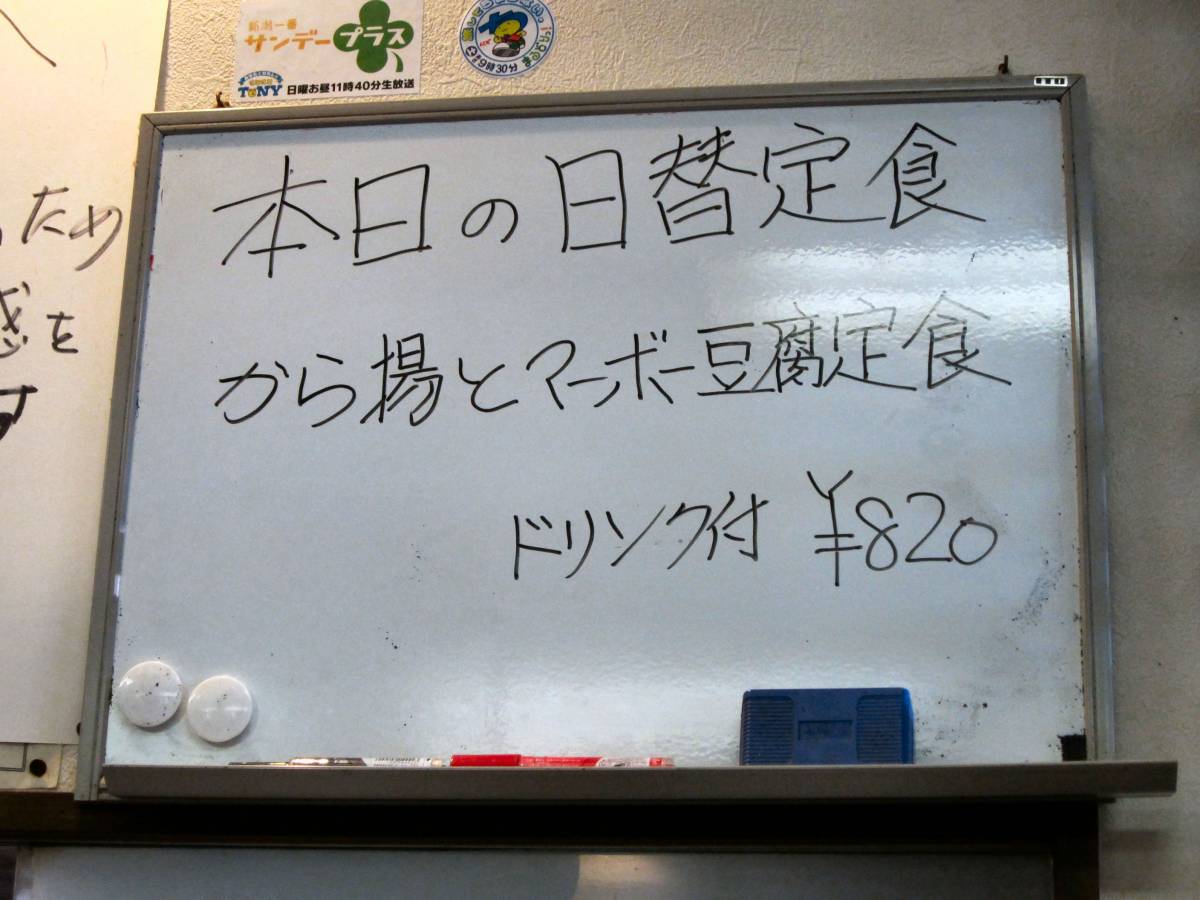 新潟一番
サンデープラス
TeNY
日曜お昼11時40分生放送
9時30分
本日の日替定食
から揚とマーボー豆腐定食
ドリンク付 ¥820
ため
感を
す